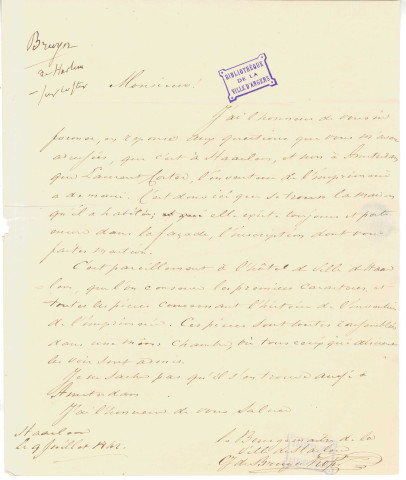 Bruyn
à Harlem
BIBLIOTHÈQUE
DE LA
VILLE D'ANGERS
Monsieur!
J'ai l'honneur de vous in
former, en réponse aux questions que vous m'avez
adressées, que c'est à Haarlem, et non à Amsterdam
que Laurent Coster, l'inventeur de l'imprimerie
a demeuré. C'est donc ici que se trouve la maison
qu'il a habitée, et qui elle existe toujours et porte
encore dans la façade, l'inscription dont vous
faites mention.
C'est pareillement à l'hôtel de ville de Haar
lem, que l'on conserve les premiers caractères, et
toutes les pièces concernant l'histoire de l'invention
de l'imprimerie. Ces pièces sont toutes rassemblées
dans une même chambre, où tous ceux qui désirent
les voir sont admis.
Je ne sache pas qu'il s'en trouve aussi à
Amsterdam.
J'ai l'honneur de vous saluer
Haarlem
le 9 Juillet 1842.
Le Bourgmestre de la
Ville de Haarlem
de Bruyn Kops